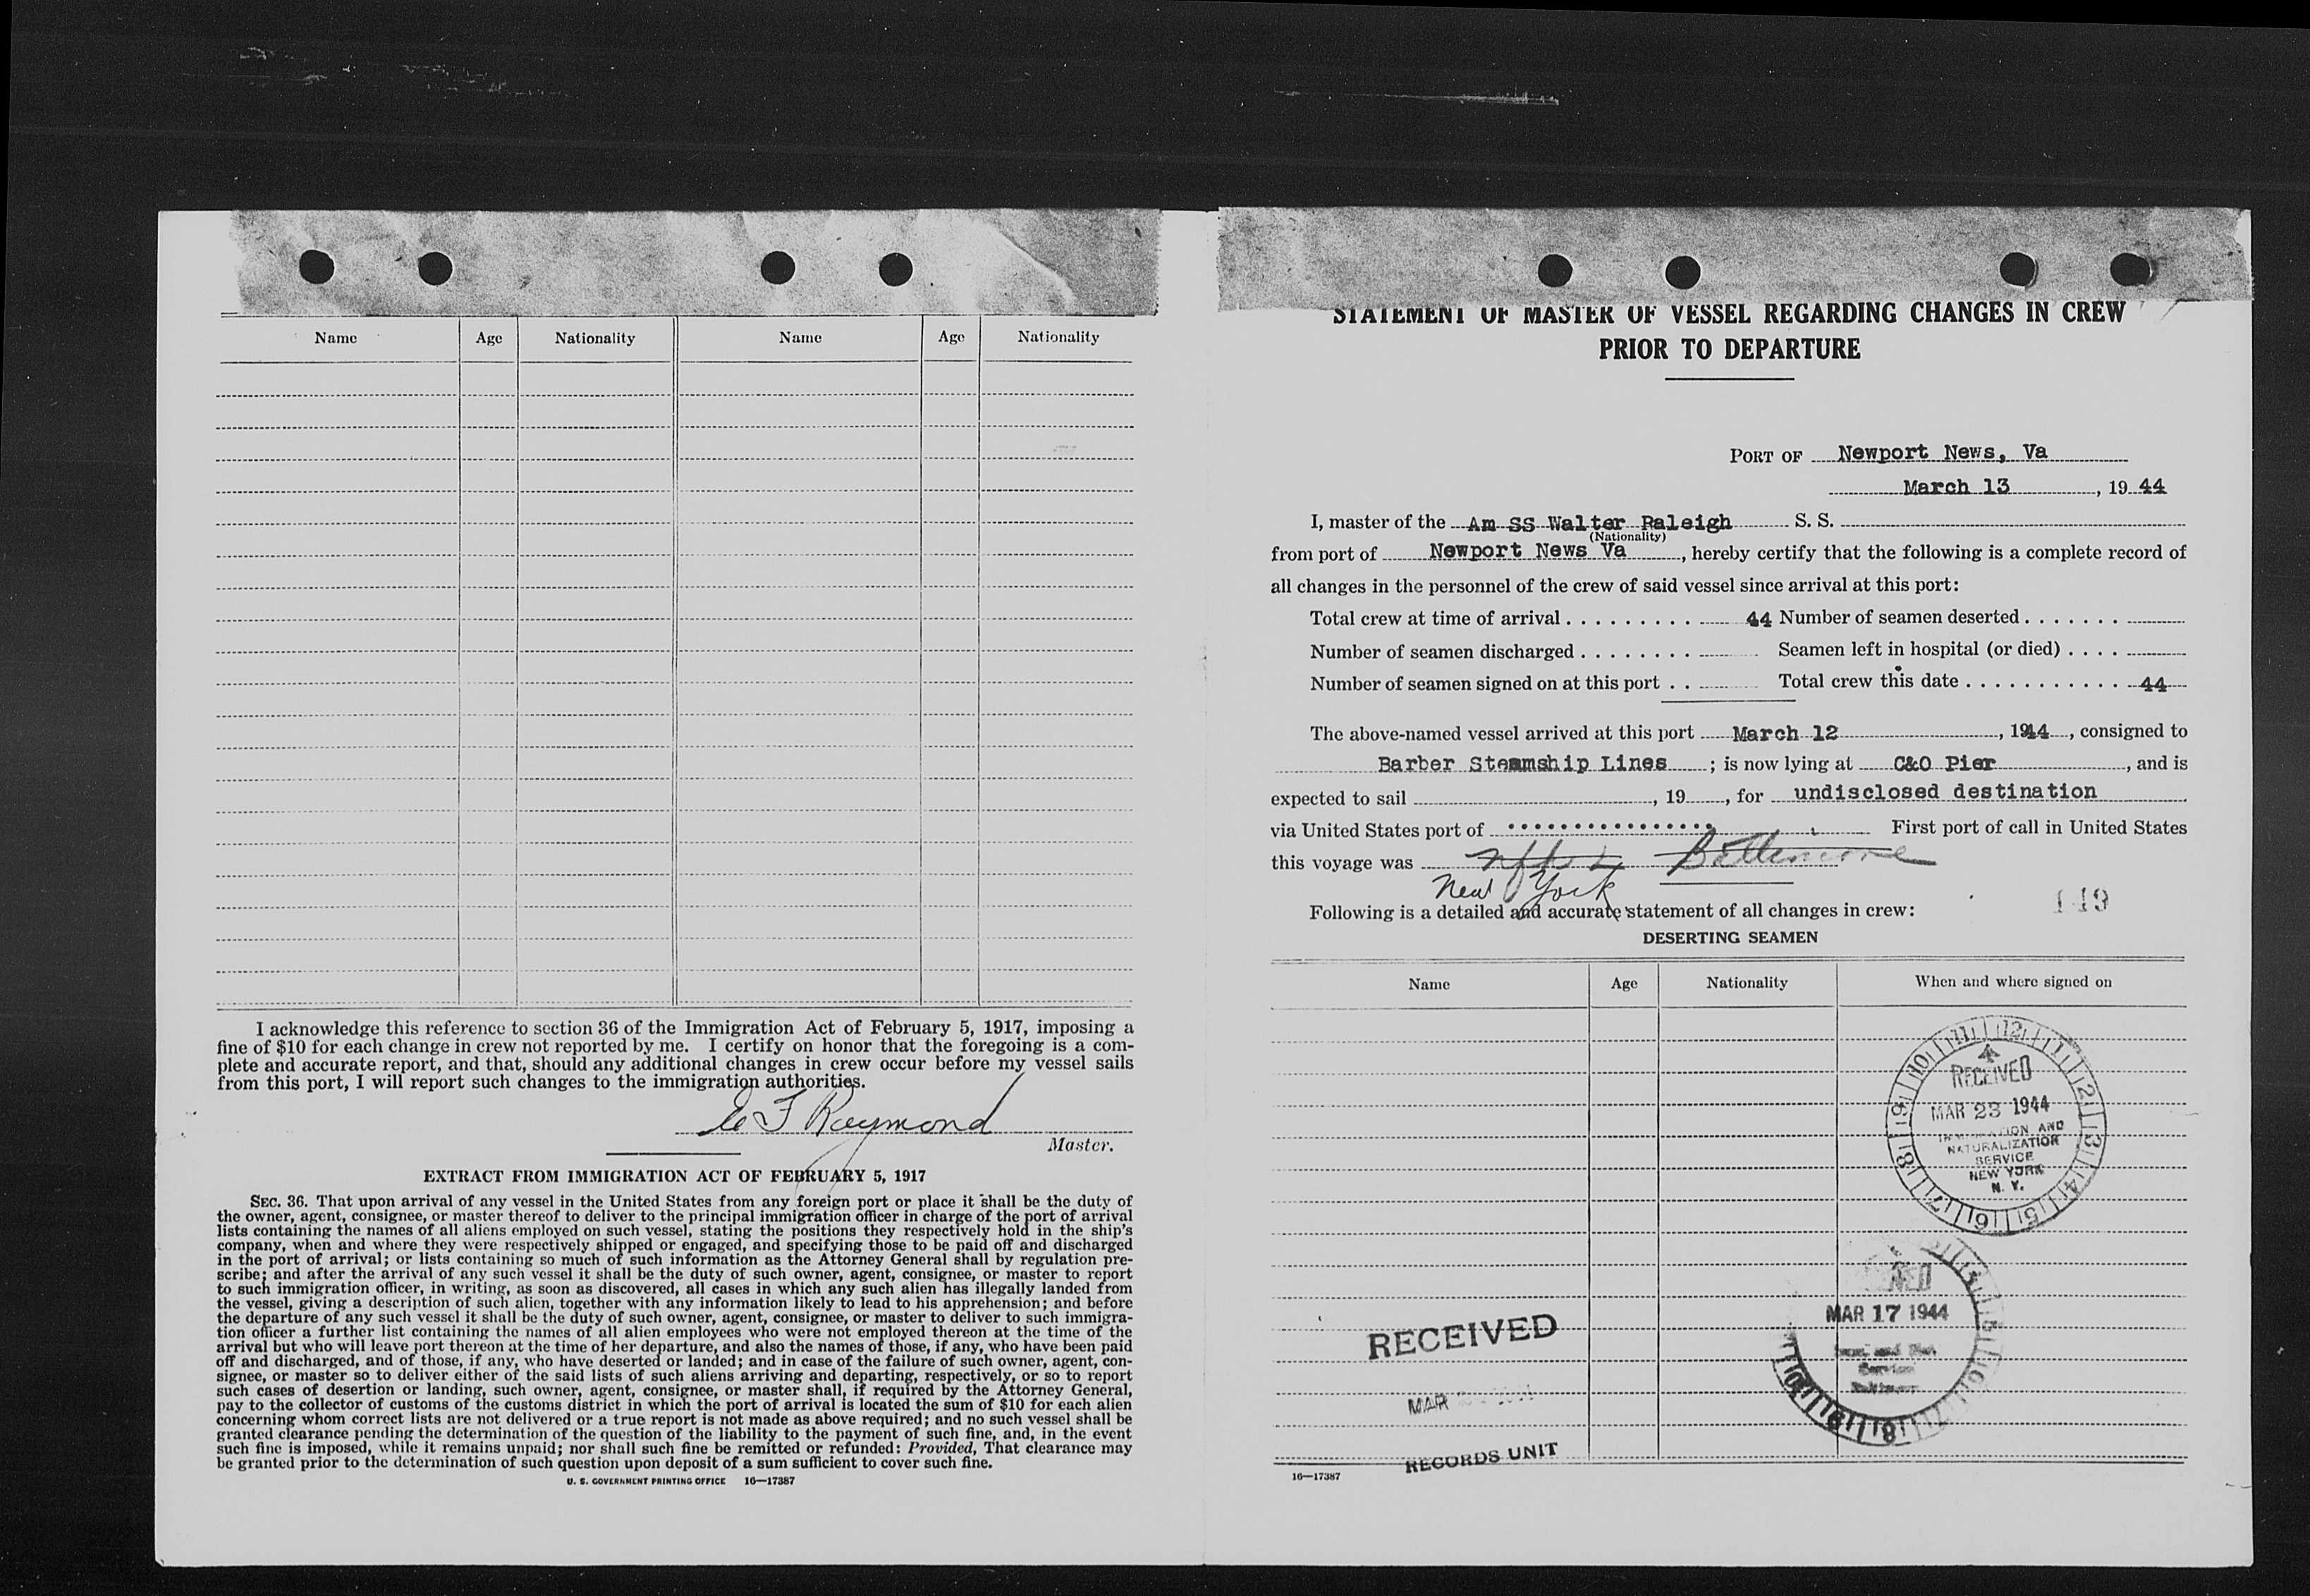 Name Age Nationality Name Age Nationality
I acknowledge this reference to section 36 of the Immigration Act of February 5, 1917, imposing a
fine of $10 for each change in crew not reported by me. I certify on honor that the foregoing is a com-
plete and accurate report, and that, should any additional changes in crew occur before my vessel sails
from this port, I will report such changes to the immigration authorities.
F Raymond
Master.
EXTRACT FROM IMMIGRATION ACT OF FEBRUARY 5, 1917
SEC. 36. That upon arrival of any vessel in the United States from any foreign port or place it shall be the duty of
the owner, agent, consignee, or master thereof to deliver to the principal immigration officer in charge of the port of arrival
lists containing the names of all aliens employed on such vessel, stating the positions they respectively hold in the ship's
company, when and where they were respectively shipped or engaged, and specifying those to be paid off and discharged
in the port of arrival; or lists containing so much of such information as the Attorney General shall by regulation pre-
scribe; and after the arrival of any such vessel it shall be the duty of such owner, agent, consignee, or master to report
to such immigration officer, in writing, as soon as discovered, all cases in which any such alien has illegally landed from
the vessel, giving a description of such alien, together with any information likely to lead to his apprehension; and before
the departure of any such vessel it shall be the duty of such owner, agent, consignee, or master to deliver to such immigra-
tion officer a further list containing the names of all alien employees who were not employed thereon at the time of the
arrival but who will leave port thereon at the time of her departure, and also the names of those, if any, who have been paid
off and discharged, and of those, if any, who have deserted or landed; and in case of the failure of such owner, agent, con-
signee, or master so to deliver either of the said lists of such aliens arriving and departing, respectively, or so to report
such cases of desertion or landing, such owner, agent, consignee, or master shall, if required by the Attorney General,
pay to the collector of customs of the customs district in which the port of arrival is located the sum of $10 for each alien
concerning whom correct lists are not delivered or a true report is not made as above required; and no such vessel shall be
granted clearance pending the determination of the question of the liability to the payment of such fine, and, in the event
such fine is imposed, while it remains unpaid; nor shall such fine be remitted or refunded: Provided, That clearance may
be granted prior to the determination of such question upon deposit of a sum sufficient to cover such fine.
U. S. GOVERNMENT PRINTING OFFICE 16—17387
STATEMENT OF MASTER OF VESSEL REGARDING CHANGES IN CREW
PRIOR TO DEPARTURE
PORT OF Newport News, Va
March 13, 19 44
I, master of the Am SS Walter Raleigh S. S.
(Nationality)
from port of Newport News Va, hereby certify that the following is a complete record of
all changes in the personnel of the crew of said vessel since arrival at this port:
Total crew at time of arrival . . . . . . . . . 44 Number of seamen deserted . . . . . . .
Number of seamen discharged . . . . . . . . Seamen left in hospital (or died) . . . .
Number of seamen signed on at this port . . Total crew this date . . . . . . . . . . . . 44
The above-named vessel arrived at this port March 12, 1944, consigned to
Barber Steamship Lines; is now lying at C&O Pier, and is
expected to sail , 19 , for undisclosed destination
via United States port of ................ First port of call in United States
this voyage was Baltimore
New York
Following is a detailed and accurate statement of all changes in crew:
149
DESERTING SEAMEN
Name Age Nationality When and where signed on
RECEIVED
MAR 23 1944
IMMIGRATION AND
NATURALIZATION
SERVICE
NEW YORK
N. Y.
MAR 17 1944
RECEIVED
MAR
RECORDS UNIT
16—17387